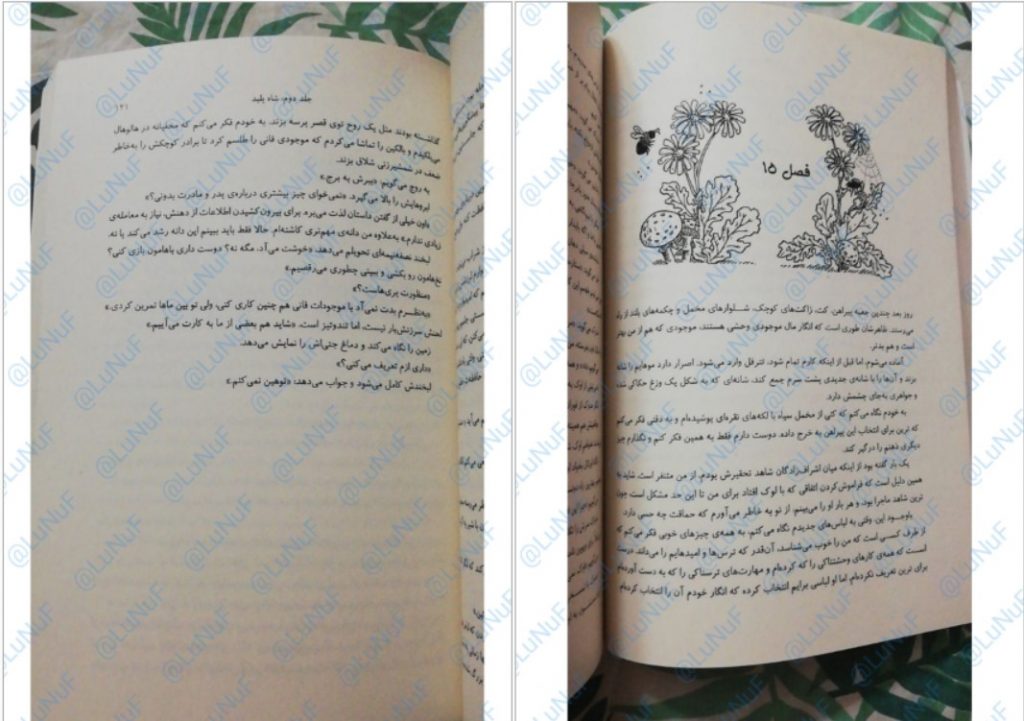 جلد دوم، شاه پلید
۱۳۱
گذاشته بودند مثل یک روح توی قصر پرسه بزند. به خودم فکر می‌کنم که مخفیانه در هالوهال
می‌لنگیدم و بالکین را تماشا می‌کردم که موجودی فانی را طلسم کرد تا برادر کوچکش را به‌خاطر
ضعف در شمشیرزنی شلاق بزند.
به روچ می‌گویم: «ببرش به برج.»
ابروهایش را بالا می‌گیرد. «نمی‌خوای چیز بیشتری درباره‌ی پدر و مادرت بدونی؟»
«اون خیلی از گفتن داستان لذت می‌بره. برای بیرون کشیدن اطلاعات از دهنش، نیاز به معامله‌ی
زیادی ندارم.» به‌علاوه من دانه‌ی مهم‌تری کاشته‌ام. حالا فقط باید ببینم این دانه رشد می‌کند یا نه.
لبخند نصفه‌نیمه‌ای تحویلم می‌دهد. «خوشت می‌آد، مگه نه؟ دوست داری باهامون بازی کنی؟
نخ‌هامون رو بکشی و ببینی چطوری می‌رقصیم.»
«منظورت پری‌هاست؟»
«به‌نظرم بدت نمی‌آد با موجودات فانی هم چنین کاری کنی، ولی تو بین ماها تمرین کردی.»
لحنش سرزنش‌بار نیست، اما تندوتیز است. «شاید هم بعضی از ما به کارت می‌آییم.»
زمین را نگاه می‌کند و دماغ جنی‌اش را نمایش می‌دهد.
«داری ازم تعریف می‌کنی؟»
لبخندش کامل می‌شود و جواب می‌دهد: «توهین نمی‌کنم.»
فصل ۱۵
روز بعد چندین جعبه پیراهن، کت، ژاکت‌های کوچک، شلوارهای مخمل و چکمه‌های بلند از راه
می‌رسند. ظاهرشان طوری است که انگار مال موجودی وحشی هستند، موجودی که هم از من بهتر
است و هم بدتر.
آماده می‌شوم، اما قبل از اینکه کارم تمام شود، تترفل وارد می‌شود. اصرار دارد موهایم را شانه
بزند و آن‌ها را با شانه‌ی جدیدی پشت سرم جمع کند. شانه‌ای که به شکل یک وزغ حکاکی شده
و جواهری به‌جای چشمش دارد.
به خودم نگاه می‌کنم که کتی از مخمل سیاه با لکه‌های نقره‌ای پوشیده‌ام و به دقتی فکر می‌کنم
که ترین برای انتخاب این پیراهن به خرج داده. دوست دارم فقط به همین فکر کنم و نگذارم چیز
دیگری ذهنم را درگیر کند.
یک بار گفته بود از اینکه میان اشراف‌زادگان شاهد تحقیرش بودم، از من متنفر است. شاید به
همین دلیل است که فراموش کردن اتفاقی که با لوک افتاد برای من تا این حد مشکل است چون
ترین شاهد ماجرا بود، و هر بار او را می‌بینم، از نو به خاطر می‌آورم که حماقت چه حسی دارد.
باوجود این، وقتی به لباس‌های جدیدم نگاه می‌کنم، به همه‌ی چیزهای خوبی فکر می‌کنم که
از طرف کسی است که من را خوب می‌شناسد، آن‌قدر که ترس‌ها و امیدهایم را می‌داند. درست
است که همه‌ی کارهای وحشتناکی را که کرده‌ام و مهارت‌های ترسناکی را که به دست آورده‌ام
برای ترین تعریف نکرده‌ام، اما او لباسی برایم انتخاب کرده که انگار خودم آن را انتخاب کرده‌ام.
@LuNuF